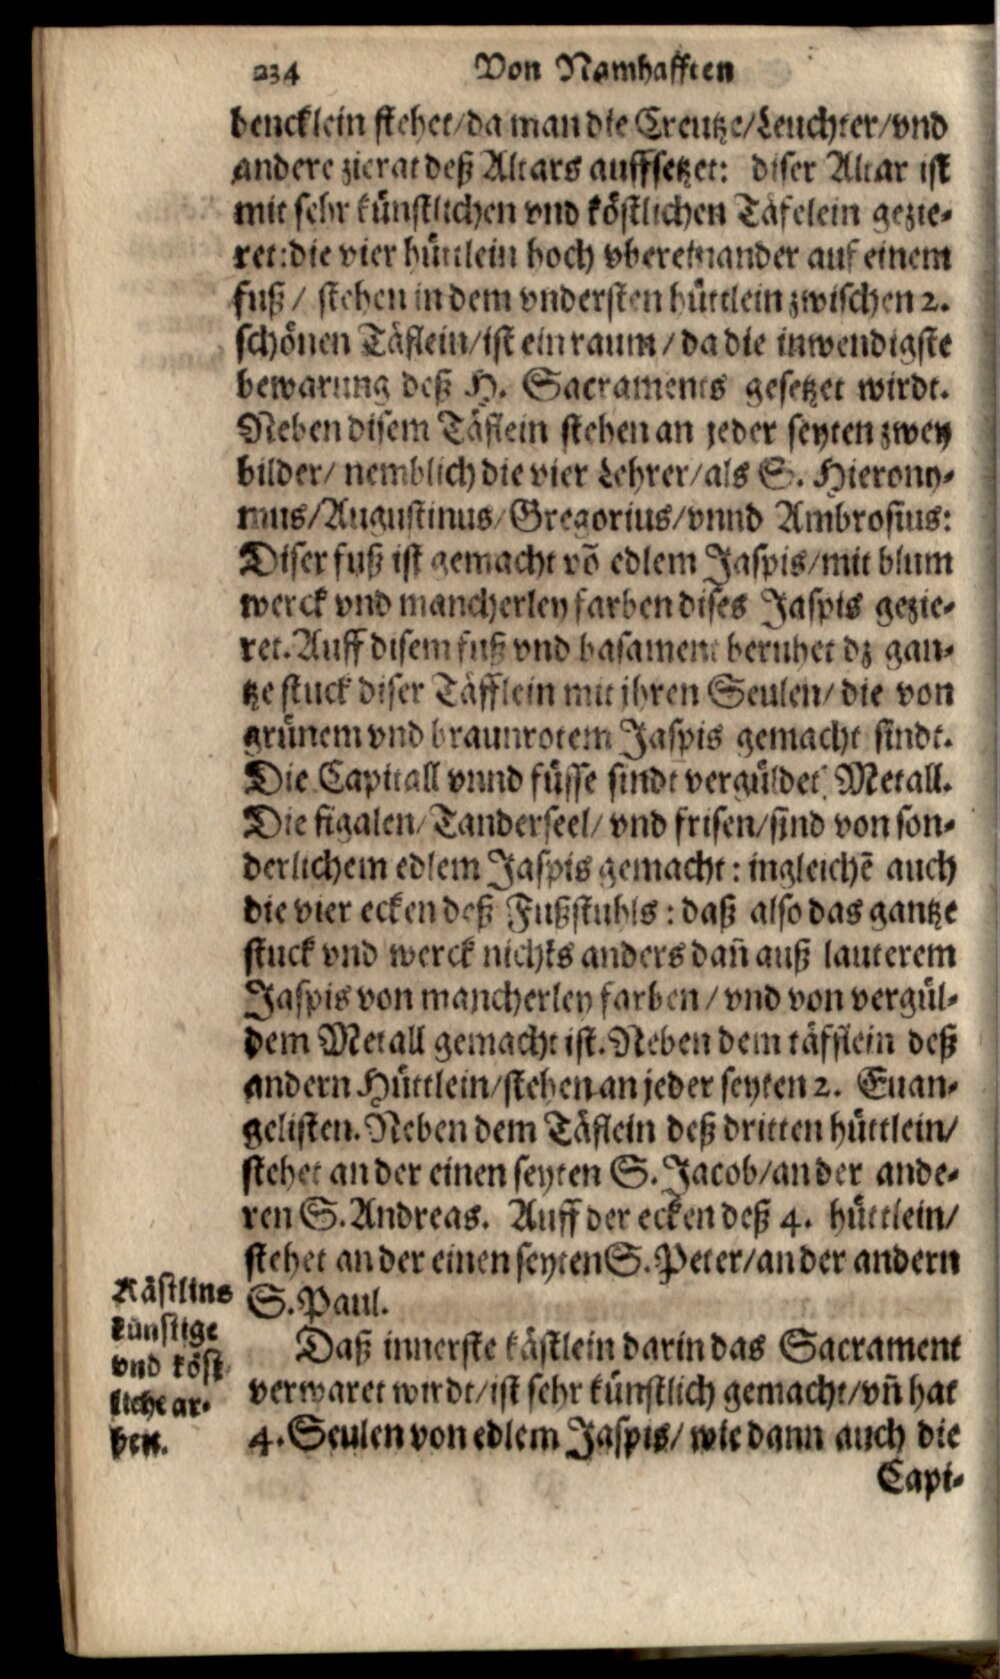 234 Von Namhafften
bencklein stehet/da man die Creutze/Leuchter/vnd
andere zierat deß Altars auffsetzet: diser Altar ist
mit sehr künstlichen vnd köstlichen Täfelein gezie-
ret: die vier hüttlein hoch vbereinander auf einem
fuß / stehen in dem vndersten hüttlein zwischen 2.
schönen Täflein/ist ein raum / da die inwendigste
bewarung deß H. Sacraments gesetzet wirdt.
Neben disem Täflein stehen an jeder seyten zwey
bilder/ nemblich die vier Lehrer/als S. Hierony-
mus/Augustinus/Gregorius/vnnd Ambrosius:
Diser fuß ist gemacht võ edlem Jaspis/mit blum
werck vnd mancherley farben dises Jaspis gezie-
ret. Auff disem fuß vnd basament beruhet dz gan-
tze stuck diser Täfflein mit jhren Seulen/ die von
grünem vnd braunrotem Jaspis gemacht sindt.
Die Capitall vnnd füsse sindt vergüldet Metall.
Die figalen/ Tanderseel/ vnd frisen/sind von son-
derlichem edlem Jaspis gemacht: ingleichẽ auch
die vier ecken deß Fußstuhls: daß also das gantze
stuck vnd werck nichts anders dañ auß lauterem
Jaspis von mancherley farben / vnd von vergül-
dem Metall gemacht ist. Neben dem täfflein deß
andern Hüttlein/stehen an jeder seyten 2. Euan-
gelisten. Neben dem Täflein deß dritten hüttlein/
stehet an der einen seyten S. Jacob/an der ande-
ren S. Andreas. Auff der ecken deß 4. hüttlein/
stehet an der einen seyten S. Peter/an der andern
S. Paul.
Kästlins
künstige
vnd köst-
liche ar-
beit.
Daß innerste kästlein darin das Sacrament
verwaret wirdt/ist sehr künstlich gemacht/vñ hat
4. Seulen von edlem Jaspis/ wie dann auch die
Capi-